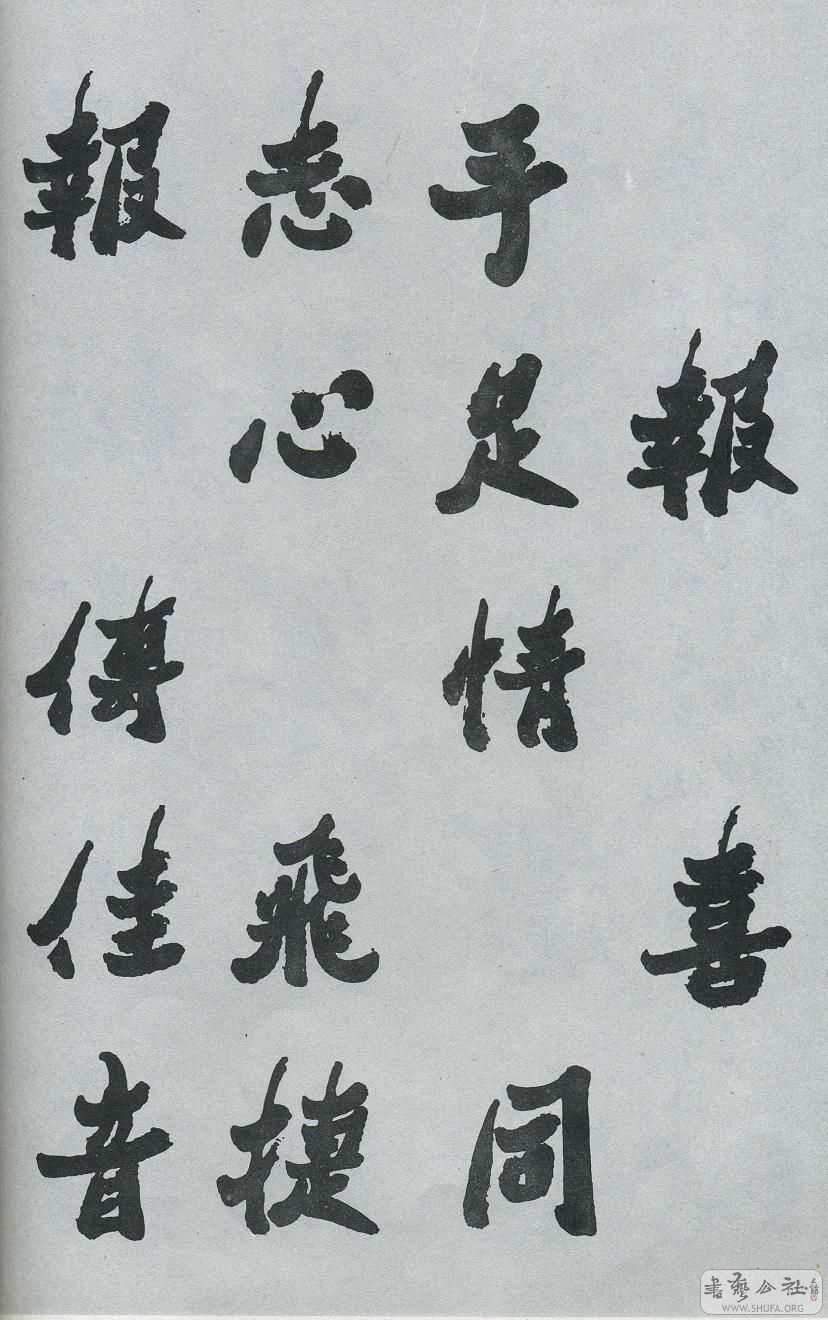 報喜
手足情同
志心飛捷
報傳佳音
書藝公社
WWW.SHUFA.ORG